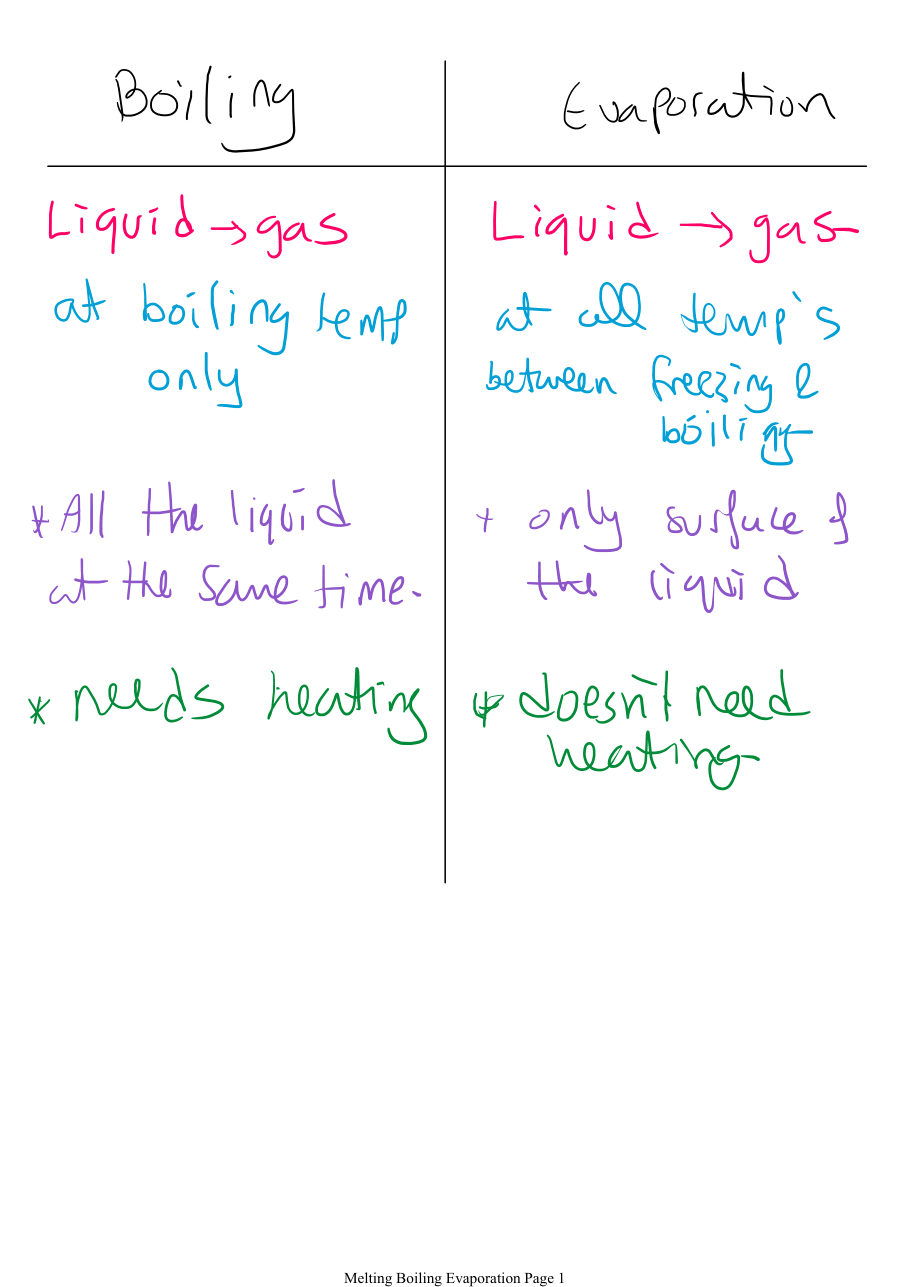 Boiling
Evaporation
Liquid → gas
at boiling temp
only
* All the liquid
at the same time.
* needs heating
Liquid → gas
at all temp's
between freezing &
boiling
* only surface of
the liquid
* doesn't need
heating
Melting Boiling Evaporation Page 1